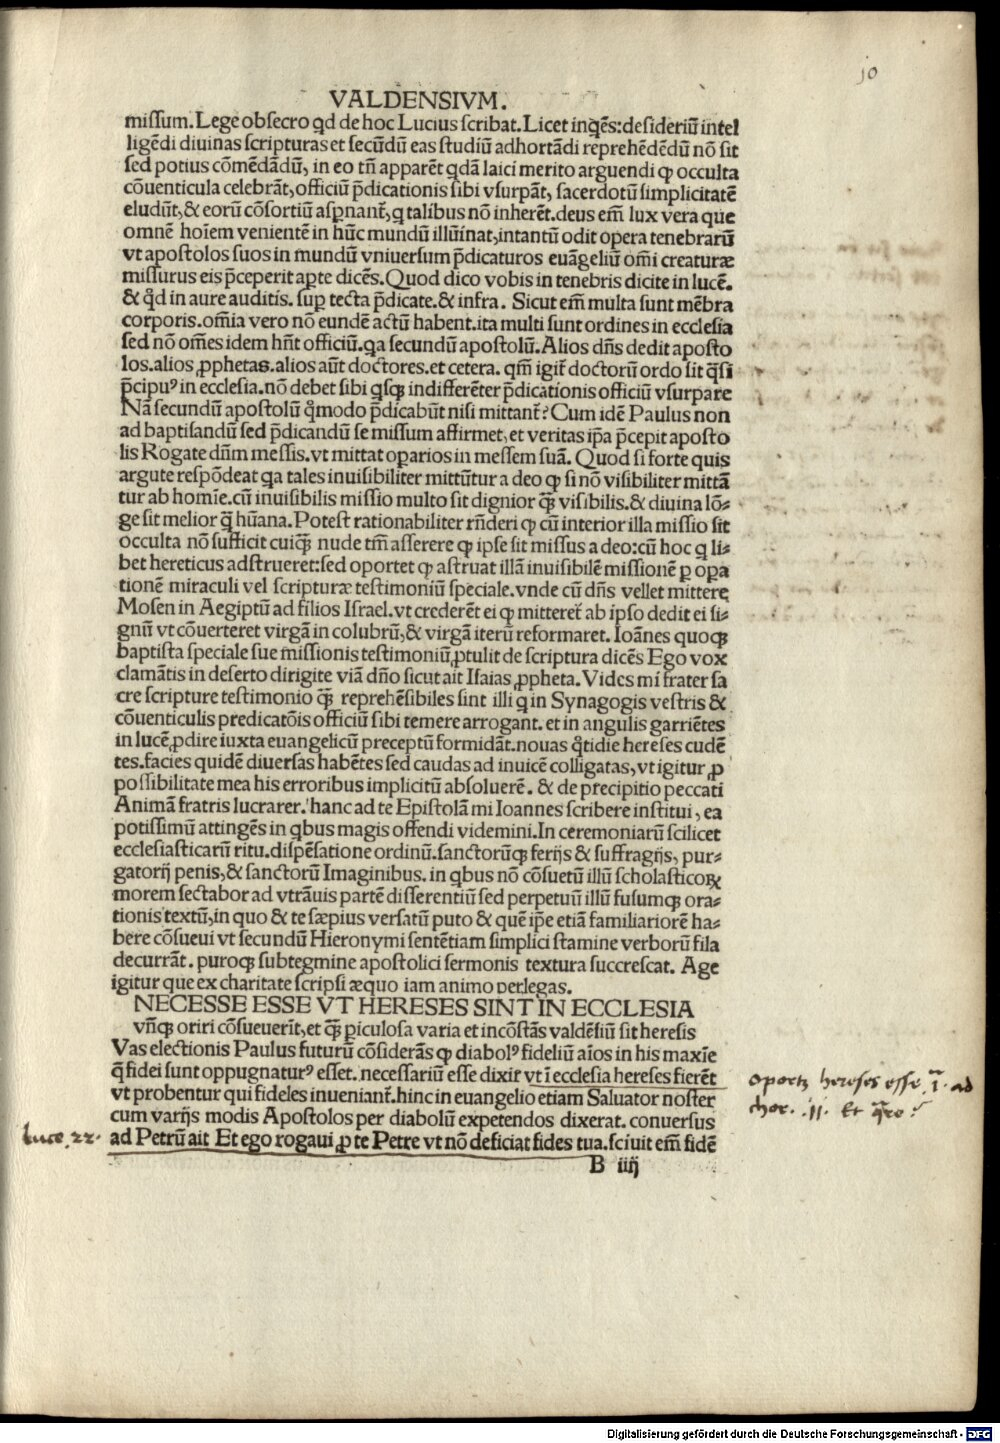 10
VALDENSIVM.
missum. Lege obsecro qd de hoc Lucius scribat. Licet inqēs: desideriū intel
ligēdi diuinas scripturas et secūdū eas studiū adhortādi reprehēdēdū nō sit
sed potius cōmēdādū, in eo tñ apparēt qdā laici merito arguendi ꝙ occulta
cōuenticula celebrāt, officiū p̄dicationis sibi vsurpāt, sacerdotū simplicitatē
eludūt, & eorū cōsortiū asꝑnant᷑, q talibus nō inherēt. deus em̄ lux vera que
omnē hoīem venientē in hūc mundū illūinat, intantū odit opera tenebrarū
vt apostolos suos in mundū vniuersum p̄dicaturos euāgeliū om̄i creaturæ
missurus eis p̄ceperit aꝑte dicēs. Quod dico vobis in tenebris dicite in lucē.
& qd̄ in aure auditis. suꝑ tecta p̄dicate. & infra. Sicut em̄ multa sunt mēbra
corporis. om̄ia vero nō eundē actū habent. ita multi sunt ordines in ecclesia
sed nō om̄es idem hn̄t officiū. qa secundū apostolū. Alios dn̄s dedit aposto
los. alios ꝓphetas. alios aūt doctores. et cetera. qm̄ igit᷑ doctorū ordo sit q̄si
p̄cipuꝰ in ecclesia. nō debet sibi qsqꝫ indifferēter p̄dicationis officiū vsurpare
Nā secundū apostolū qͦmodo p̄dicabūt nisi mittant᷑? Cum idē Paulus non
ad baptisandū sed p̄dicandū se missum affirmet, et veritas ip̄a p̄cepit aposto
lis Rogate dn̄m messis. vt mittat oꝑarios in messem suā. Quod si forte quis
argute respōdeat qa tales inuisibiliter mittūtur a deo ꝙ si nō visibiliter mittā
tur ab homīe. cū inuisibilis missio multo sit dignior q̄ꝫ visibilis. & diuina lō⸗
ge sit melior q̄ hūana. Potest rationabiliter rn̄deri ꝙ cū interior illa missio sit
occulta nō sufficit cuiq̄ꝫ nude tm̄ asserere ꝙ ipse sit missus a deo: cū hoc q li⸗
bet hereticus adstrueret: sed oportet ꝙ astruat illā inuisibilē missionē ꝑ oꝑa
tionē miraculi vel scripturæ testimoniū speciale. vnde cū dn̄s vellet mittere
Mosen in Aegiptū ad filios Israel. vt crederēt ei ꝙ mitteret᷑ ab ipso dedit ei si⸗
gnū vt cōuerteret virgā in colubrū, & virgā iterū reformaret. Ioānes quoqꝫ
baptista speciale sue missionis testimoniū ꝓtulit de scriptura dicēs Ego vox
clamātis in deserto dirigite viā dn̄o sicut ait Isaias ꝓpheta. Vides mi frater sa
cre scripture testimonio q̄ꝫ reprehēsibiles sint illi q in Synagogis vestris &
cōuenticulis predicatōis officiū sibi temere arrogant. et in angulis garriētes
in lucē ꝓdire iuxta euangelicū preceptū formidāt. nouas qͦtidie hereses cudē
tes. facies quidē diuersas habētes sed caudas ad inuicē colligatas, vt igitur ꝓ
possibilitate mea his erroribus implicitū absoluerē. & de precipitio peccati
Animā fratris lucrarer. hanc ad te Epistolā mi Ioannes scribere institui, ea
potissimū attingēs in qbus magis offendi videmini. In ceremoniarū scilicet
ecclesiasticarū ritu. dispēsatione ordinū. sanctorūqꝫ ferijs & suffragijs, pur⸗
gatorij penis, & sanctorū Imaginibus. in qbus nō cōsuetū illū scholasticoꝝ
morem sectabor ad vtrāuis partē disserentiū sed perpetuū illū fusumqꝫ ora⸗
tionis textū, in quo & te sæpius versatū puto & quē ip̄e etiā familiariorē ha⸗
bere cōsueui vt secundū Hieronymi sentētiam simplici stamine verborū fila
decurrāt. puroqꝫ subtegmine apostolici sermonis textura succrescat. Age
igitur que ex charitate scripsi æquo iam animo perlegas.
NECESSE ESSE VT HERESES SINT IN ECCLESIA
vn̄qꝫ oriri cōsueuerīt, et q̄ꝫ ꝑiculosa varia et incōstās valdēsiū sit heresis
Vas electionis Paulus futurū cōsiderās ꝙ diabolꝰ fideliū aīos in his maxīe
q̄ fidei sunt oppugnaturꝰ esset. necessariū esse dixit vt ī ecclesia hereses fierēt
vt probentur qui fideles inueniant᷑. hinc in euangelio etiam Saluator noster
cum varijs modis Apostolos per diabolū expetendos dixerat. conuersus
ad Petrū ait Et ego rogaui ꝓ te Petre vt nō deficiat fides tua. sciuit em̄ fidē
B iiij
oportꝫ hereses esse. 1. ad
chor. 11. Et q̄re?
Luce. 22.
Digitalisierung gefördert durch die Deutsche Forschungsgemeinschaft - DFG